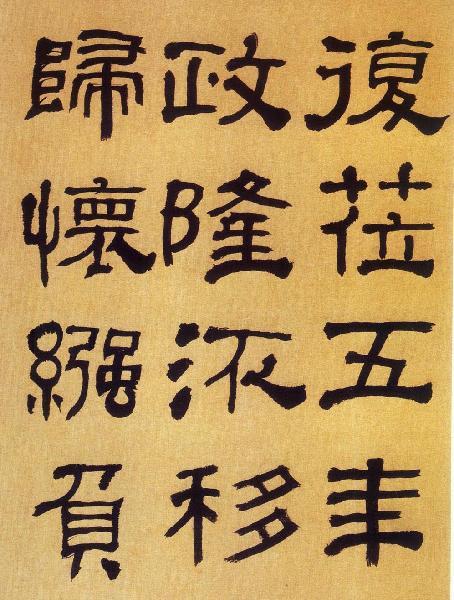 復莅五年
政隆㳅移
歸懷繦負